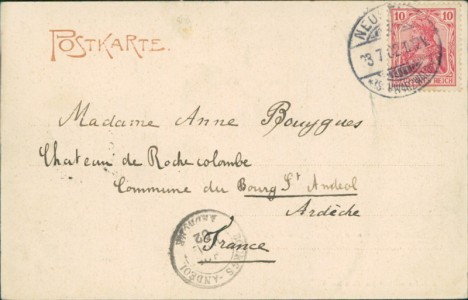 POSTKARTE.
10 10
REICH
Madame Anne Bouygues
Chateau de Rochecolombe
Commune du Bourg St Andéol
Ardèche
France